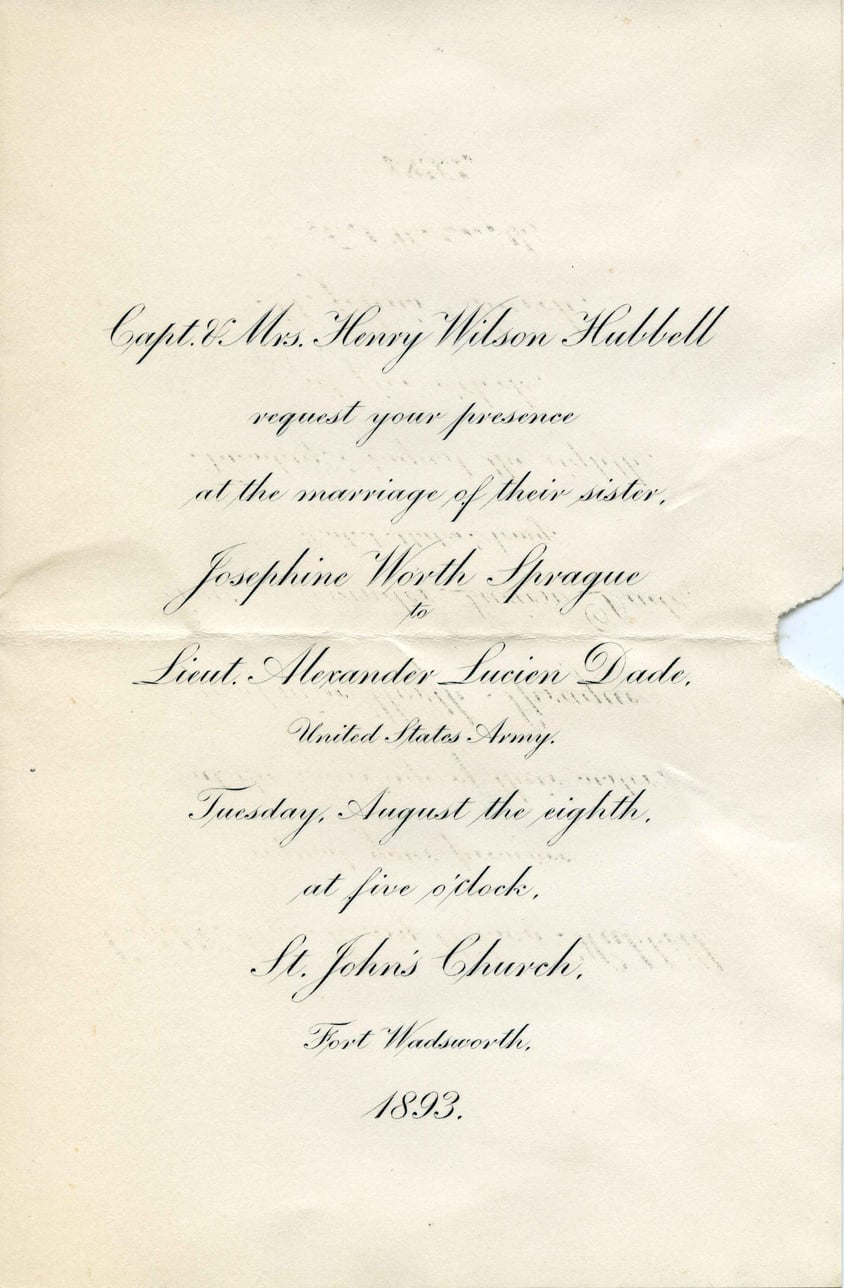 Capt. & Mrs. Henry Wilson Hubbell
request your presence
at the marriage of their sister,
Josephine Worth Sprague
to
Lieut. Alexander Lucien Dade,
United States Army.
Tuesday, August the eighth,
at five o'clock,
St. John's Church,
Fort Wadsworth,
1893.